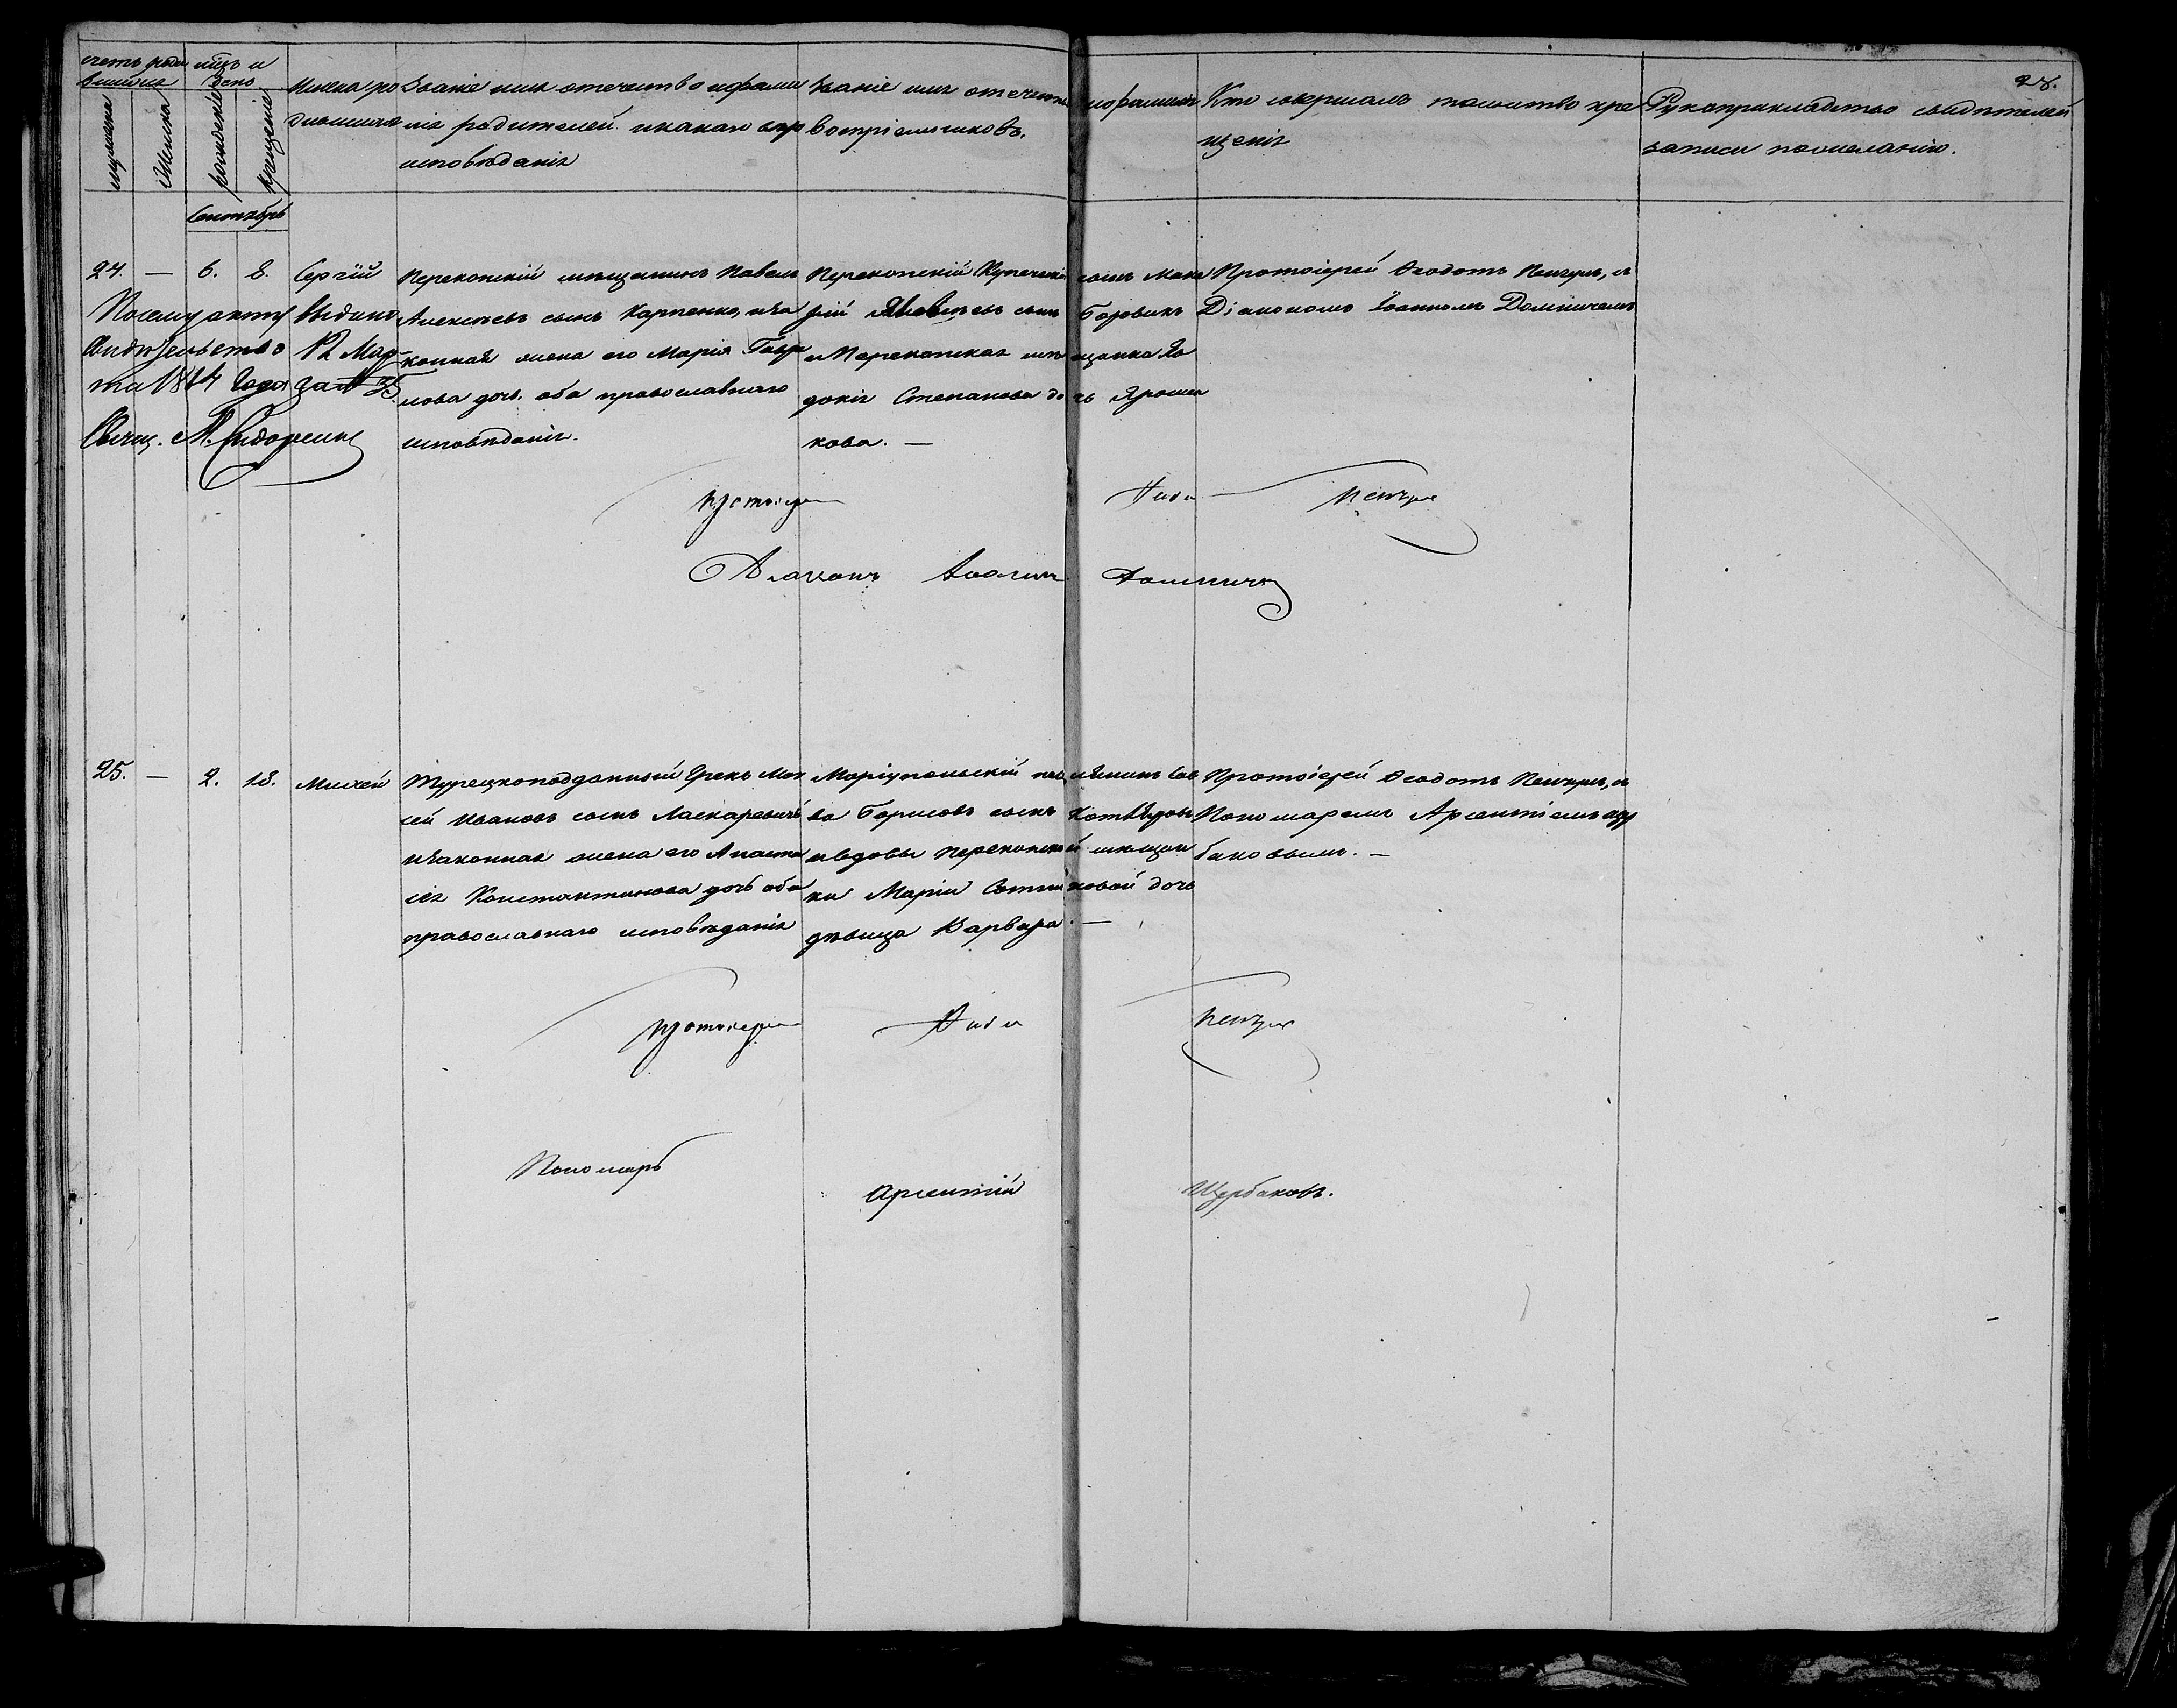 28.
счетъ роди
вшихся
мужеска
Женска
мѣсяцъ и
день
рожденіе
крещеніе
Имена ро
дившихся
Званіе имя отечество и фами
лія родителей и какого вѣро
исповѣданія
Званіе имя отечество и фамилія
воспріемниковъ.
Кто совершалъ таинство кре
щенія
Рукоприкладство свидѣтелей
записи по желанію.
Сентябрь
24. — 6. 8. Сергій
Перекопскій мѣщанинъ Павелъ
Алексѣевъ сынъ Карпенко, и за
конная жена его Марія Гаври
лова дочь. оба православнаго
исповѣданія.
Перекопскій Купеческій сынъ Мака
рій Яковлевъ сынъ Боровикъ
и Перекопская мѣщанка Ев
докія Степанова дочь Ярошен
кова. —
Протоіерей Ѳеодотъ Пенчулъ, съ
Діакономъ Іоанномъ Доминичемъ
По сему акту выдано
свидѣтельство 12 Мар-
та 1874 года за № 35
Свящ. М. Сидоренко
Протоіерей
Пенчулъ
Діаконъ Іоаннъ Доминичъ
25. — 2. 18. Михей
Турецкоподданный Грекъ Мох
сей Ивановъ сынъ Ласкаревичъ
и законная жена его Анаста
сія Константинова дочь оба
православнаго исповѣданія
Маріупольскій поселянинъ Сав
ва Борисовъ сынъ
и вдовы Перекопской мѣщан
ки Маріи Сотниковой дочь
дѣвица Варвара. —
Протоіерей Ѳеодотъ Пенчулъ, съ
Пономаремъ Арсентіемъ Щер
баковымъ. —
Протоіерей
Пенчулъ
Пономарь
Арсентій
Щербаковъ.